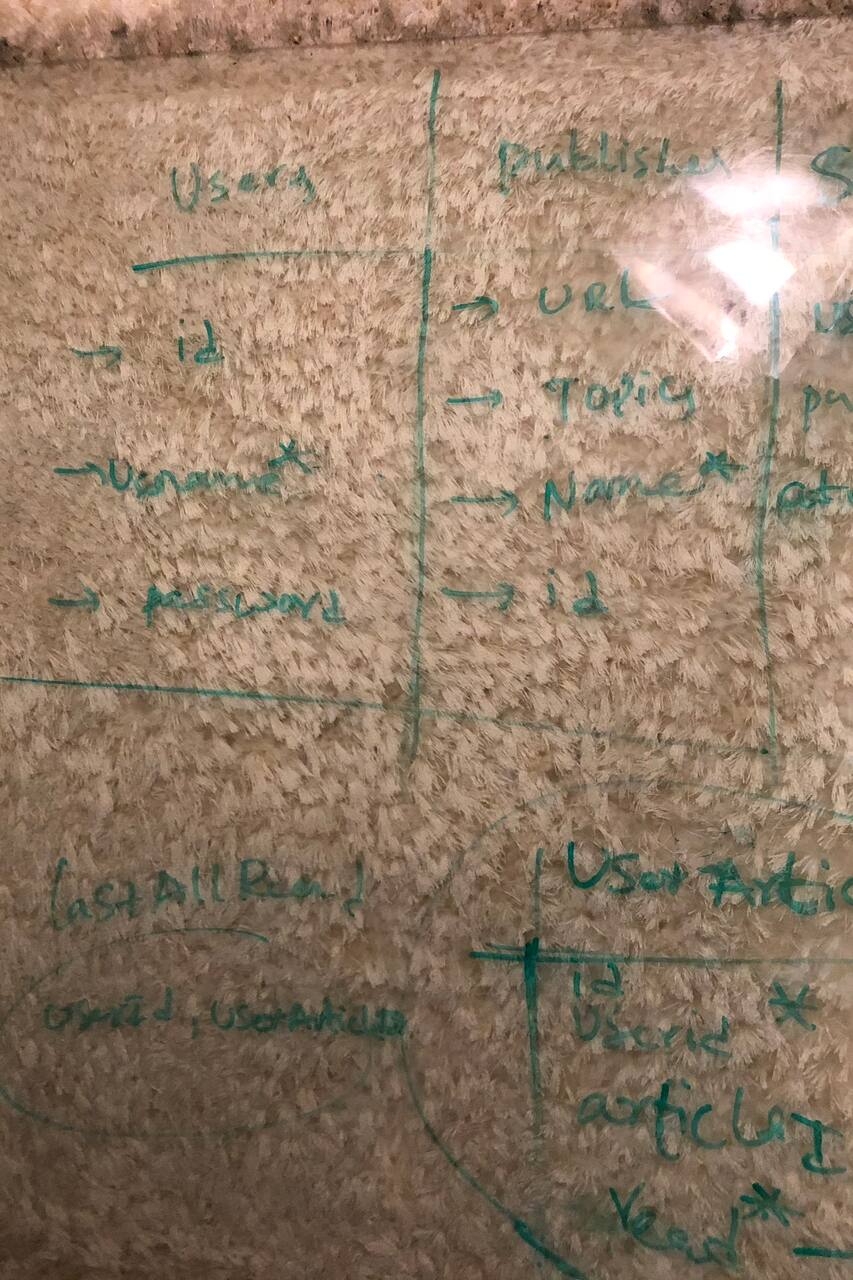 Users
→ id
→ Username*
→ password
publisher
→ URL
→ Topics
→ Name*
→ id
S
us
pu
lastAllRead
userId, userArticleId
User Artic
id
Userid *
articleId
Read*